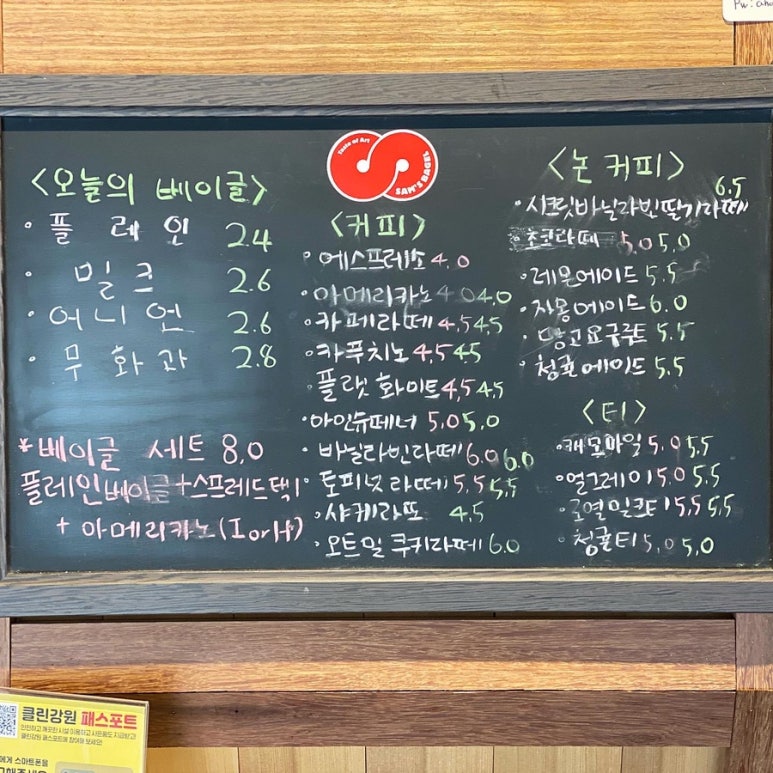 Pw:
Taste of Art
SAM'S BAGEL
<오늘의 베이글>
· 플레인 2.4
· 밀크 2.6
· 어니언 2.6
· 무화과 2.8
* 베이글 세트 8.0
플레인베이글+스프레드택1
+ 아메리카노(I or H)
<커피>
· 에스프레소 4.0
· 아메리카노 4.0 4.0
· 카페라떼 4.5 4.5
· 카푸치노 4.5 4.5
· 플랫 화이트 4.5 4.5
· 아인슈페너 5.0 5.0
· 바닐라빈라떼 6.0 6.0
· 토피넛라떼 5.5 5.5
· 샤케라또 4.5
· 오트밀 쿠키라떼 6.0
<논 커피>
· 시크릿바닐라빈딸기라떼 6.5
· 초코라떼 5.0 5.0
· 레몬에이드 5.5
· 자몽에이드 6.0
· 망고요구르트 5.5
· 청귤에이드 5.5
<티>
· 캐모마일 5.0 5.5
· 얼그레이 5.0 5.5
· 로열밀크티 5.5 5.5
· 청귤티 5.0 5.0
클린강원 패스포트
안전하고 깨끗한 시설 이용하고 사은품도 지급받고!
클린강원 패스포트에 참여해 보세요!
에게 스마트폰을